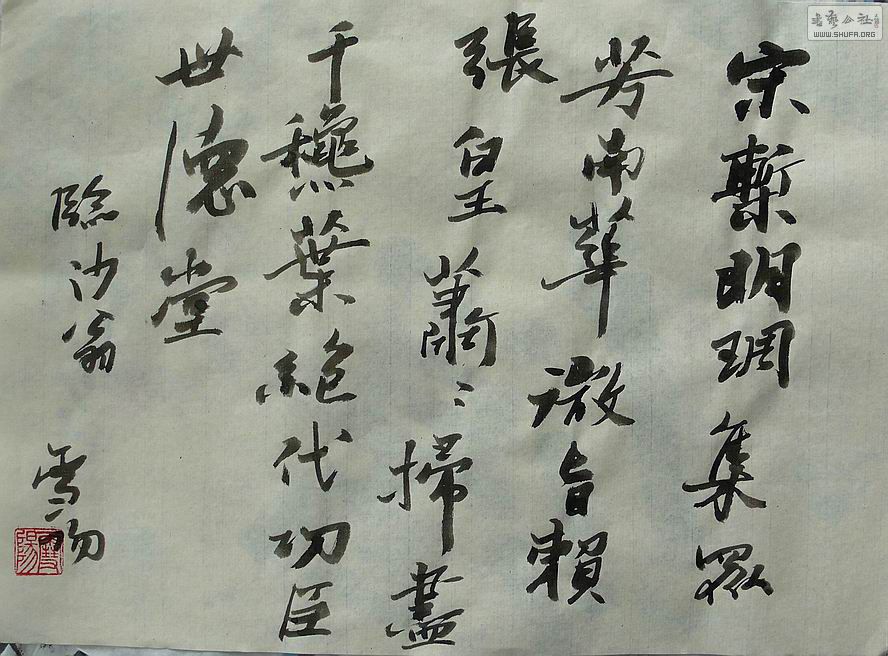 宋槧明琱集眾
芳南華微旨賴
張皇蕭〻掃盡
千龝葉絕代功臣
世德堂
臨沙翁 雪旸
書藝公社
WWW.SHUFA.ORG